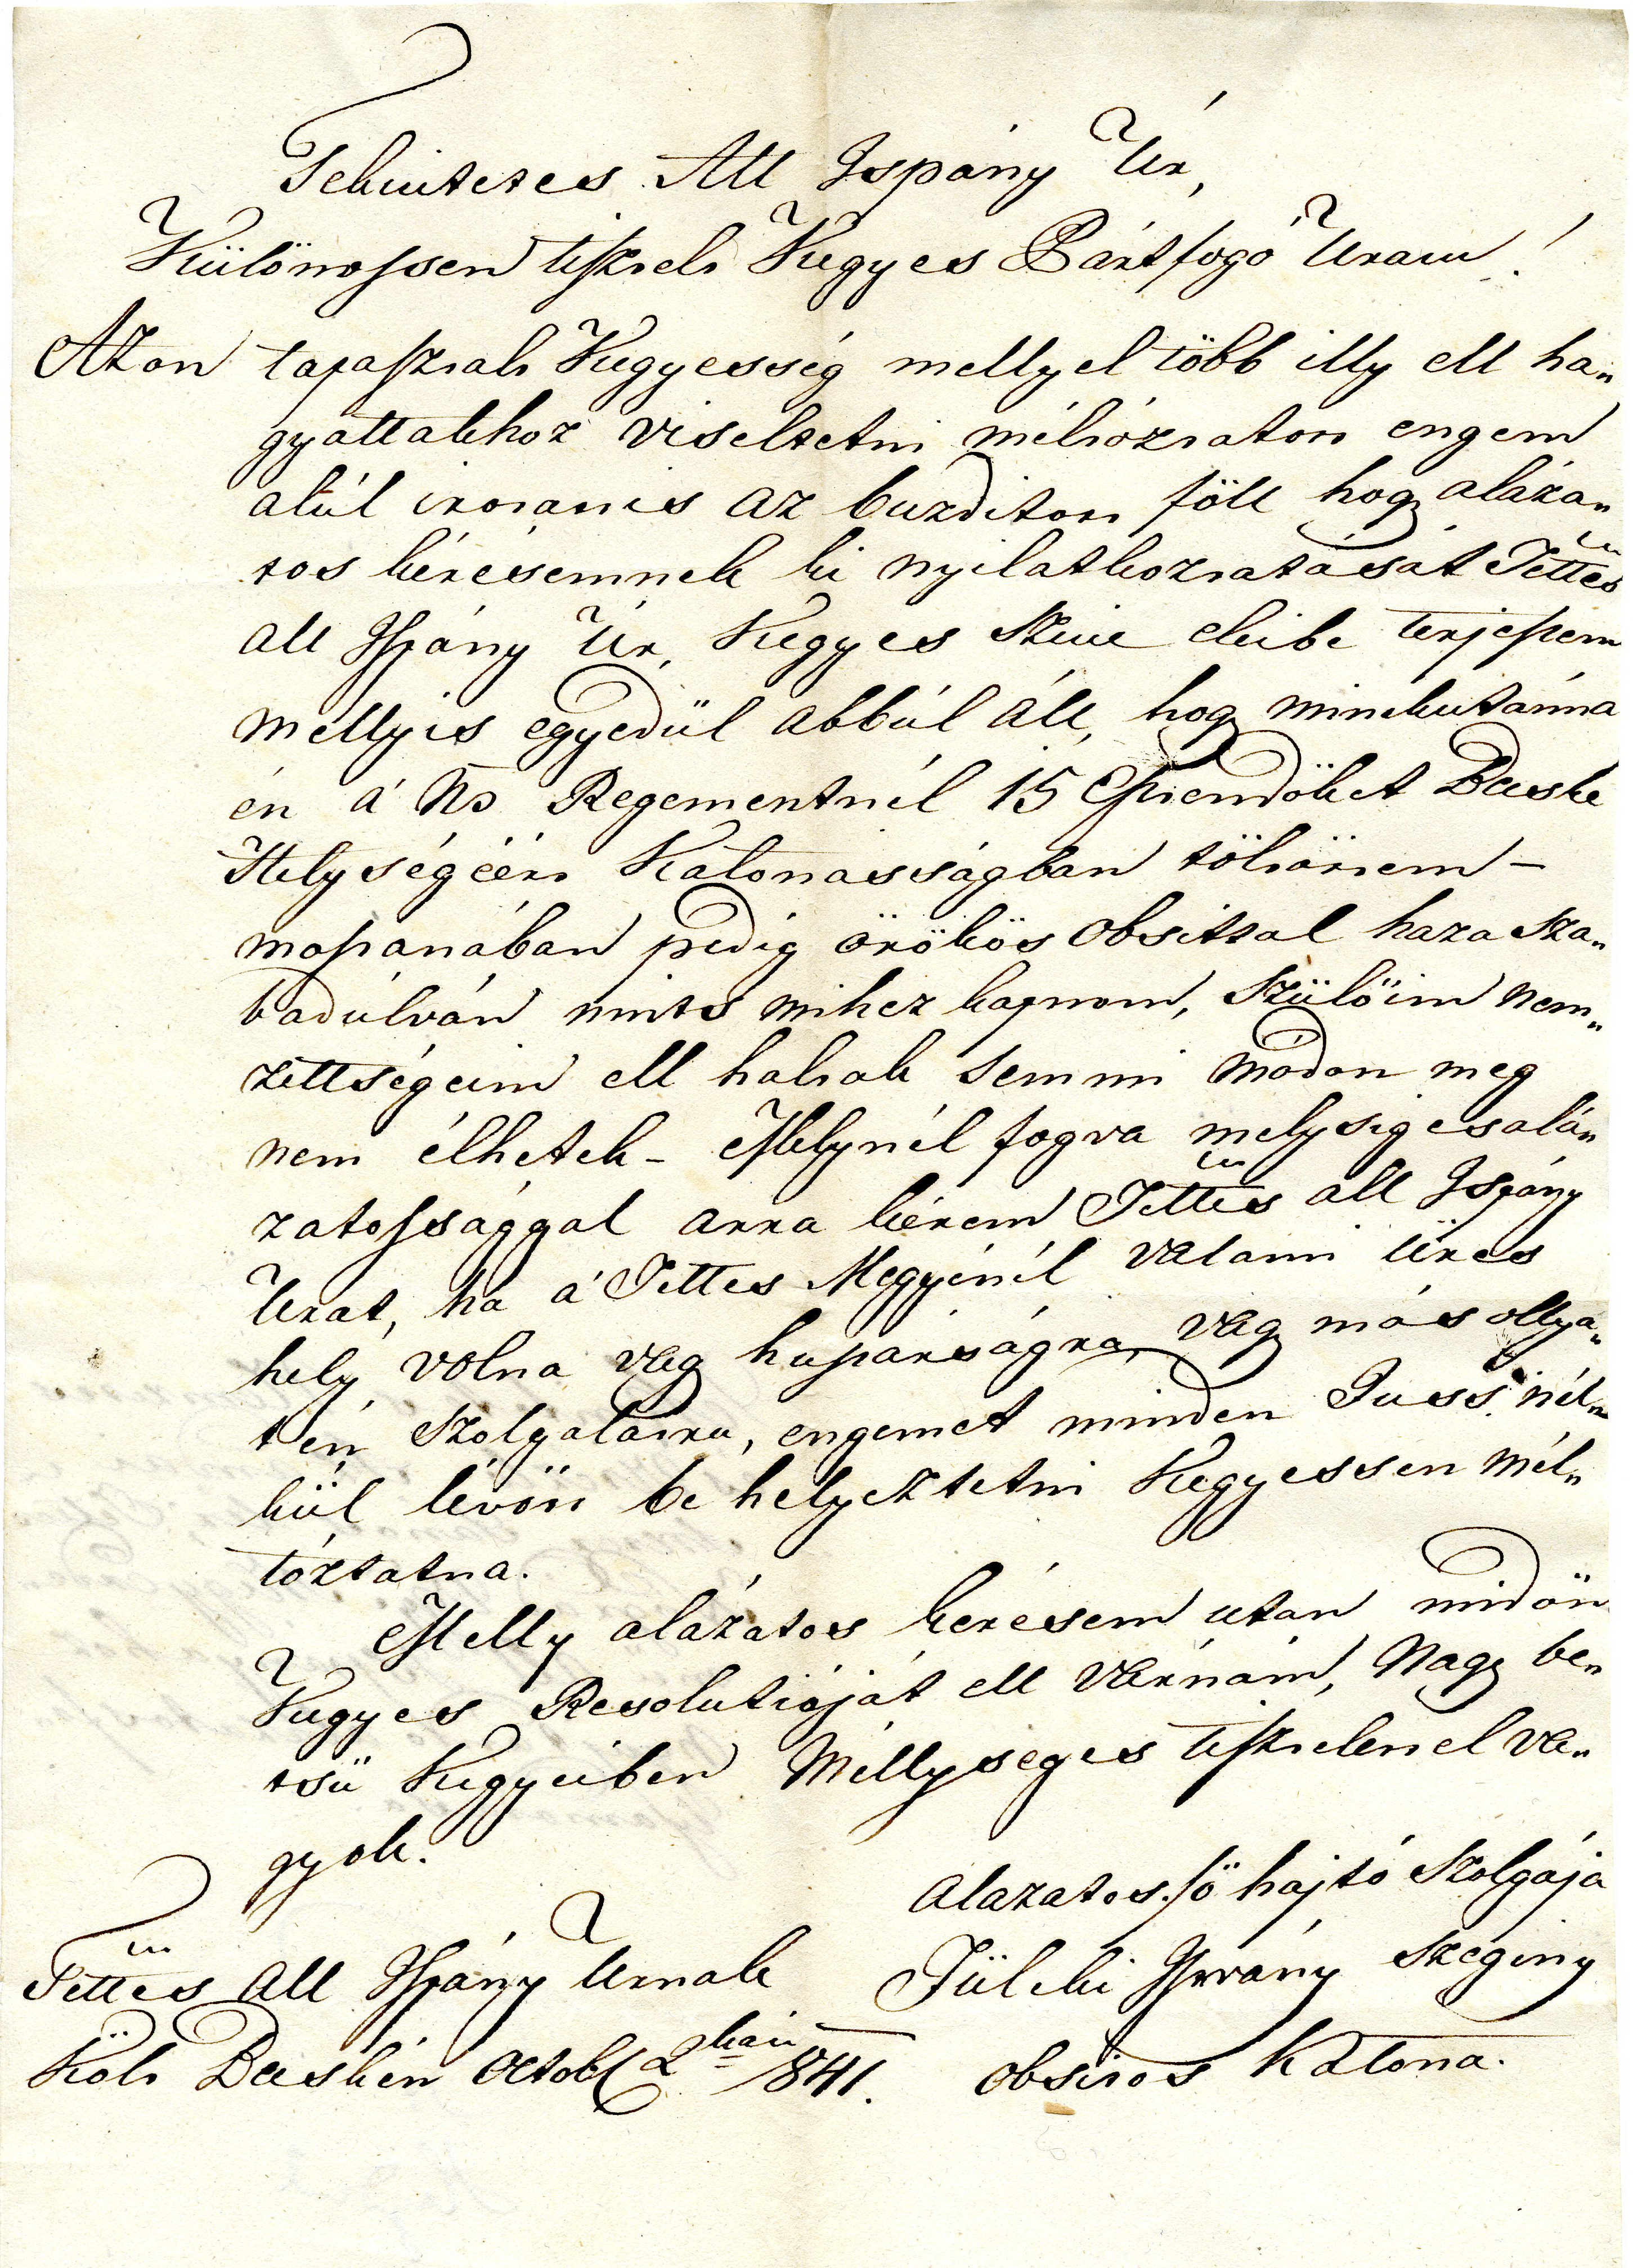 Tekintetes All Ispány Úr,
Különossen tisztelt Kegyes Pártfogó Uram!
Azon tapasztalt Kegyesség mellyel több illy ell ha„
gyattakhoz viseltetni méltóztatott engem
alúl irottanis az buzditott föll hogy aláza„
tos kérésemnek ki nyilatkoztatását Tettes
All Ispány Úr, Kegyes Szine eleibe terjeszem
mellyis egyedül abbúl áll, hogy minekutánna
én á Ns Regementnél 15 Esztendöket Decske
Helységéért Katonasságban töltöttem –
mostanában pedig örökös obsittal haza sza„
badúlván nints mihez kapnom, Szülőim nem„
zettségeim ell haltak semmi módon meg
nem élhetek – Mellynél fogva melységes alá„
zatossággal arra kérem Tettes all Ispány
Urat, ha á Tettes Megyénél valami üres
hely volna vagy huszárságra, vagy más ollya„
tén szolgálatra, engemet minden Juss nél„
kül lévőtt be helyeztetni Kegyessen mél„
tóztatna.
Melly alázatos kerésem utan midön
Kegyes Resolutióját ell várnám, Nagy be„
tsü Kegyeiben Méllyseges tisztelettel va„
gyok.
Alazatos fö hajtó Szolgája
Tettes All Ispány Urnak
Tülcki Istvány szegény
Költ Decskén Octobr 2kán 1841.
obsitos Katona.